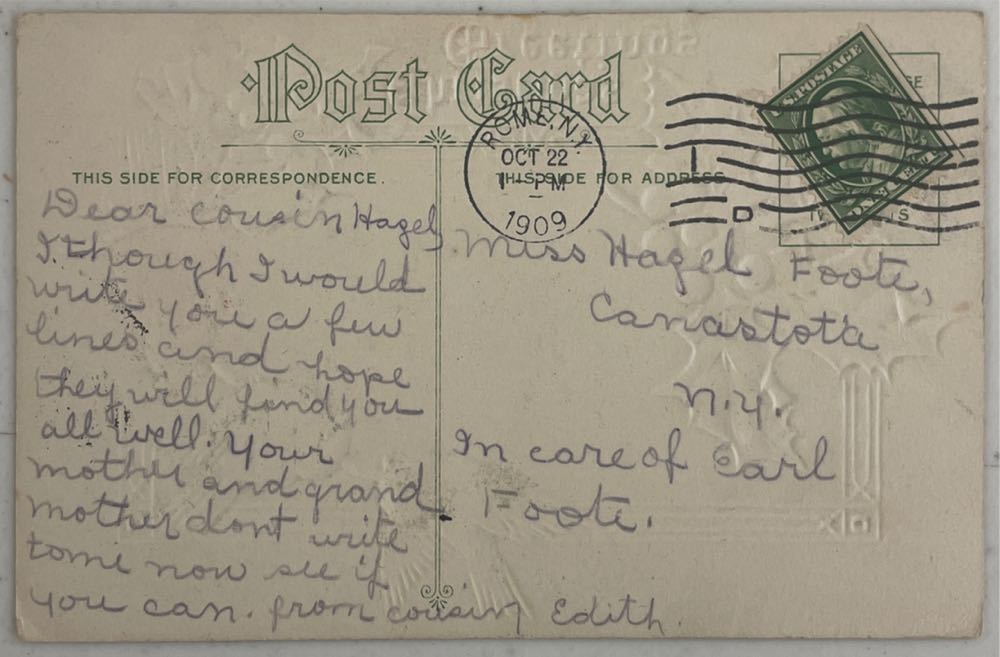 Post Card
ROME, N.Y.
OCT 22
1 - PM
1909
D
U.S. POSTAGE
ONE CENT
THIS SIDE FOR CORRESPONDENCE.
THIS SIDE FOR ADDRESS
Dear cousin Hazel,
I though I would
write you a few
lines and hope
they will find you
all well. Your
mother and grand
mother dont write
tome now see if
you can. from cousin Edith.
Miss Hazel Foote,
Canastota
N.Y.
In care of Earl
Foote.